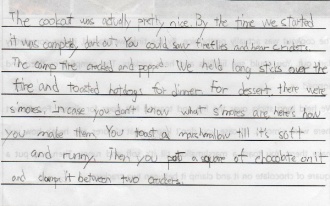 The cookout was actually pretty nice. By the time we started
it was completly dark out. You could saw fireflies and hear crickets.
The camp fire crackled and popped. We held long sticks over the
fire and toasted hotdogs for dinner. For dessert there were
s'mores. In case you don't know what s'mores are here's how
you make them. You toast a marshmallow till it's soft
and runny. Then you put a square of chocolate on it
and clamp it between two crackers.